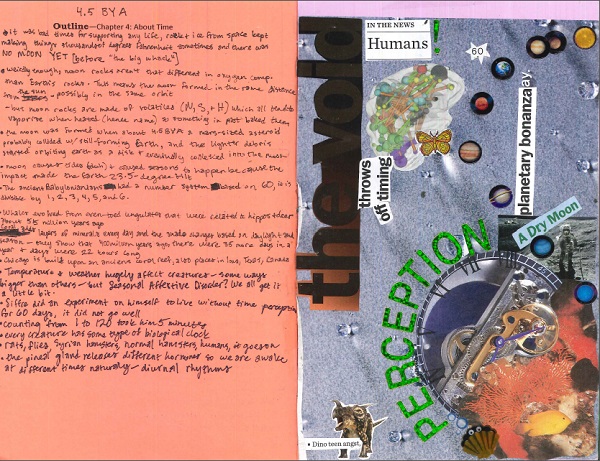 4.5 BYA
Outline—Chapter 4: About Time
• it was bad times for supporting any life, rocket ice from space kept
making things thousands of degrees fahrenheit sometimes and there was
NO MOON YET [before "the big whack"]
• weirdly enough, moon rocks aren't that different in oxygen comp.
than Earth's rocks. This means the moon formed in the same distance
from the sun - possibly in the same orbit
- but moon rocks are made of volatiles (N, S, + H) which all tend to
vaporise when heated (hence name) so something in past baked them
• the moon was formed when about 4.5 BYA a mars-sized asteroid
probably collided w/ still-forming Earth, and the lighter debris
started orbiting earth as a disk + eventually collected into the moon
• moon causes tides (duh) + caused seasons to happen because the
impact made the Earth 23.5-degree tilt
• The ancient Babylonians had a number system based on 60, it is
divisible by 1, 2, 3, 4, 5, and 6.
• whales evolved from even-toed ungulates that were related to hippos + deer
about 55 million years
layers of minerals every day and the shade changes based on daylight and
season - they show that 400 million years ago there were 35 more days in a
year + days were 22 hours long
• Chicago is built upon an ancient coral reef, also places in Iowa, Texas, Canada
• Temperature & weather hugely affect creatures - some ways
bigger than others - but Seasonal Affective Disorder? We all get it
a little bit.
• Siffre did an experiment on himself to live without time perception
for 60 days, it did not go well
• counting from 1 to 120 took him 5 minutes
• every creature has some type of biological clock
• rats, flies, Syrian hamsters, normal hamsters, humans, it goes on
• the pineal gland releases different hormones so we are awake
at different times naturally - diurnal rhythms
IN THE NEWS
Humans
!
60
the void
throws
off timing
planetary bonanza
ay
A Dry Moon
PERCEPTION
• Dino teen angst,